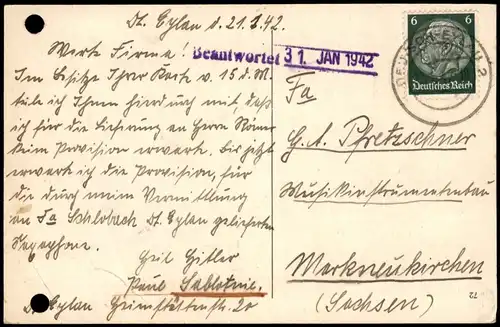 Dt. Eylau d. 21.1.42.
Werte Firma!
Beantwortet 31. JAN 1942
Im Besitze Ihrer Karte v. 15 d. M.
teile ich Ihnen hierdurch mit, daß
ich für die Lieferung an Herrn Römer
kein Provision erwarte. Bis jetzt
erwarte ich die Provision, für
die durch meine Vermittlung
an Fa Schlobach Dt. Eylau gelieferten
Saxophone.
Heil Hitler
Paul Sablotnie.
Dt. Eylau
20
6 6
Deutsches Reich
Fa
G. A. Pfretzschner
Musikinstrumentenbau
Markneukirchen
(Sachsen)
72